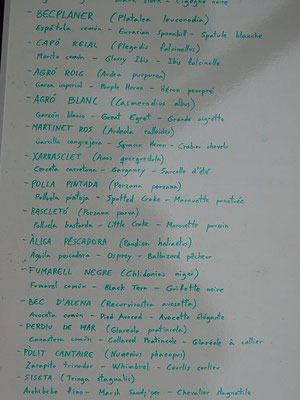 - BECPLANER (Platalea leucorodia)
Espátula común - Eurasian Spoonbill - Spatule blanche
- CAPÓ REIAL (Plegadis falcinellus)
Morito común - Glossy Ibis - Ibis falcinelle
- AGRÓ ROIG (Ardea purpurea)
Garza imperial - Purple Heron - Héron pourpré
- AGRÓ BLANC (Casmerodius albus)
Garzón blanco - Great Egret - Grande aigrette
- MARTINET ROS (Ardeola ralloides)
Garcilla cangrejera - Squacco Heron - Crabier chevelu
- XARRASCLET (Anas querquedula)
Cerceta carretona - Garganey - Sarcelle d'été
- POLLA PINTADA (Porzana porzana)
Polluela pintoja - Spotted Crake - Marouette ponctuée
- RASCLETÓ (Porzana parva)
Polluela bastarda - Little Crake - Marouette poussin
- ÀLIGA PESCADORA (Pandion haliaetus)
Aguila pescadora - Osprey - Balbuzard pêcheur
- FUMARELL NEGRE (Chlidonias niger)
Fumarel común - Black Tern - Guifette noire
- BEC D'ALENA (Recurvirostra avosetta)
Avoceta común - Pied Avocet - Avocette élégante
- PERDIU DE MAR (Glareola pratincola)
Canastera común - Collared Pratincole - Glaréole à collier
- PÒLIT CANTAIRE (Numenius phaeopus)
Zarapito trinador - Whimbrel - Courlis corlieu
- SISETA (Tringa stagnatilis)
Archibebe fino - Marsh Sandpiper - Chevalier stagnatile